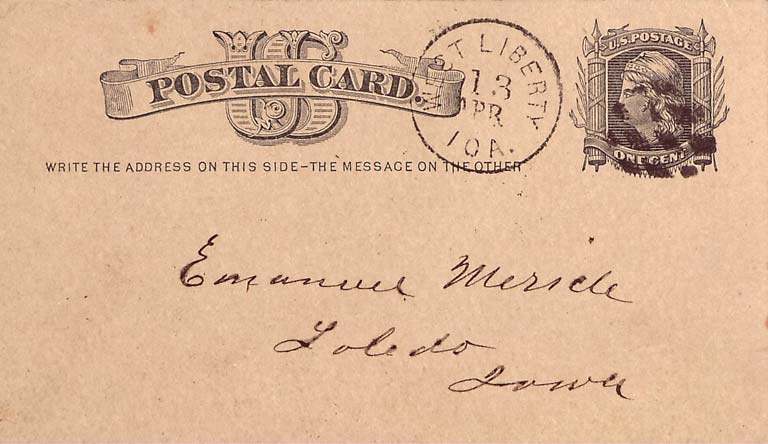 US
POSTAL CARD.
WRITE THE ADDRESS ON THIS SIDE–THE MESSAGE ON THE OTHER
WEST LIBERTY
13
APR
IOA.
U.S. POSTAGE
ONE CENT
Emanuel Mericle
Toledo
Iowa